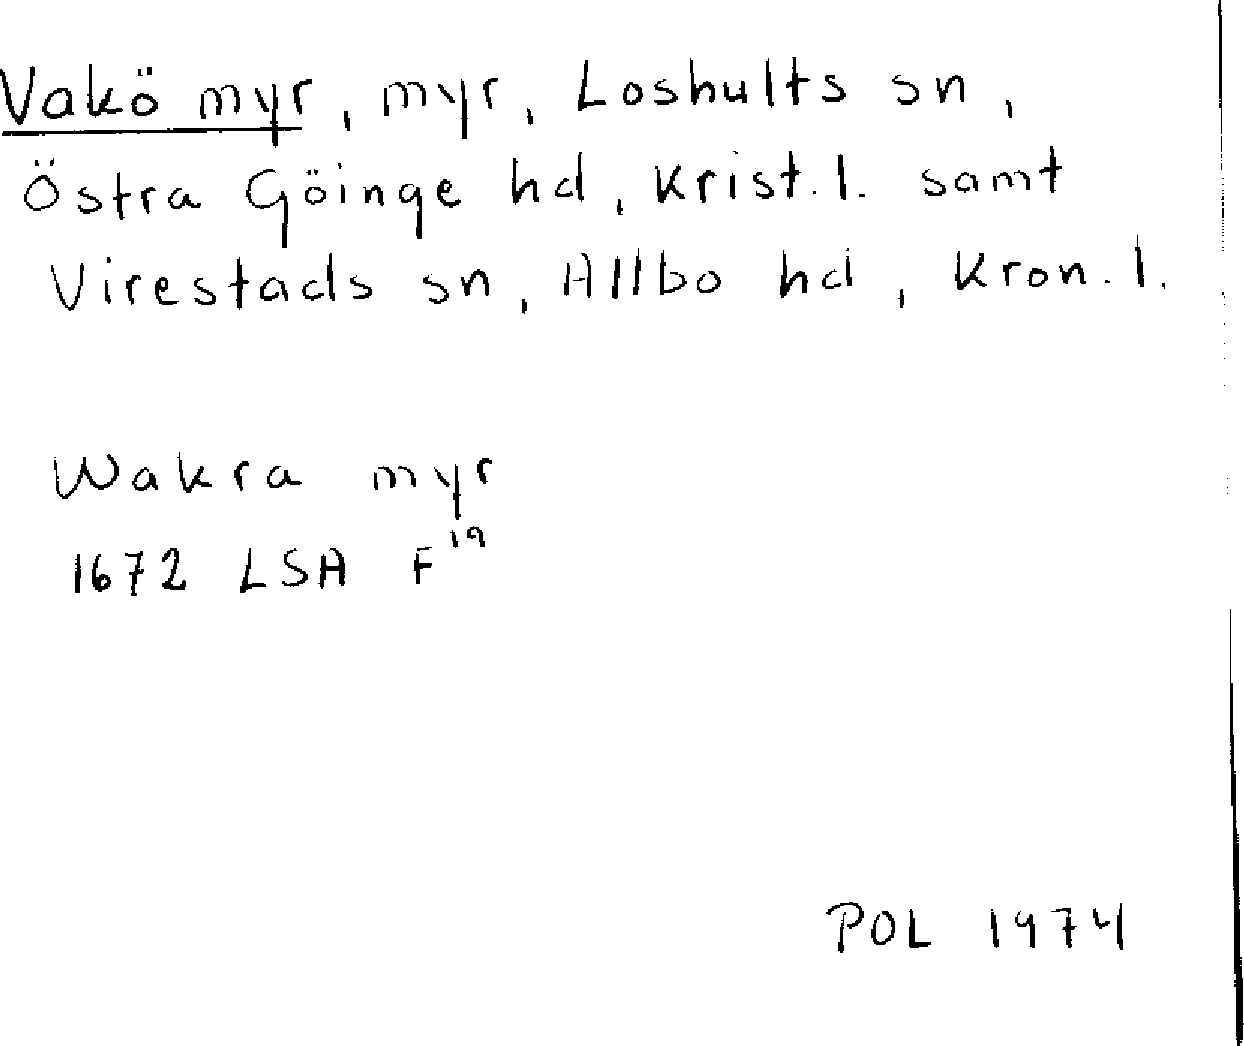 Vakö myr, myr, Loshults sn,
Östra Göinge hd, Krist. l. samt
Virestads sn, Allbo hd, Kron. l.
Wakra myr
1672 LSA F¹⁹
POL 1974